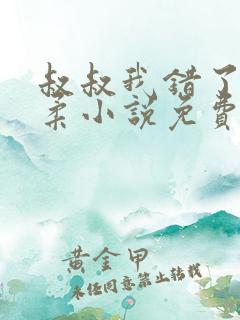 叔叔我错了
柔小说免费
黄金甲
未经同意禁止转载